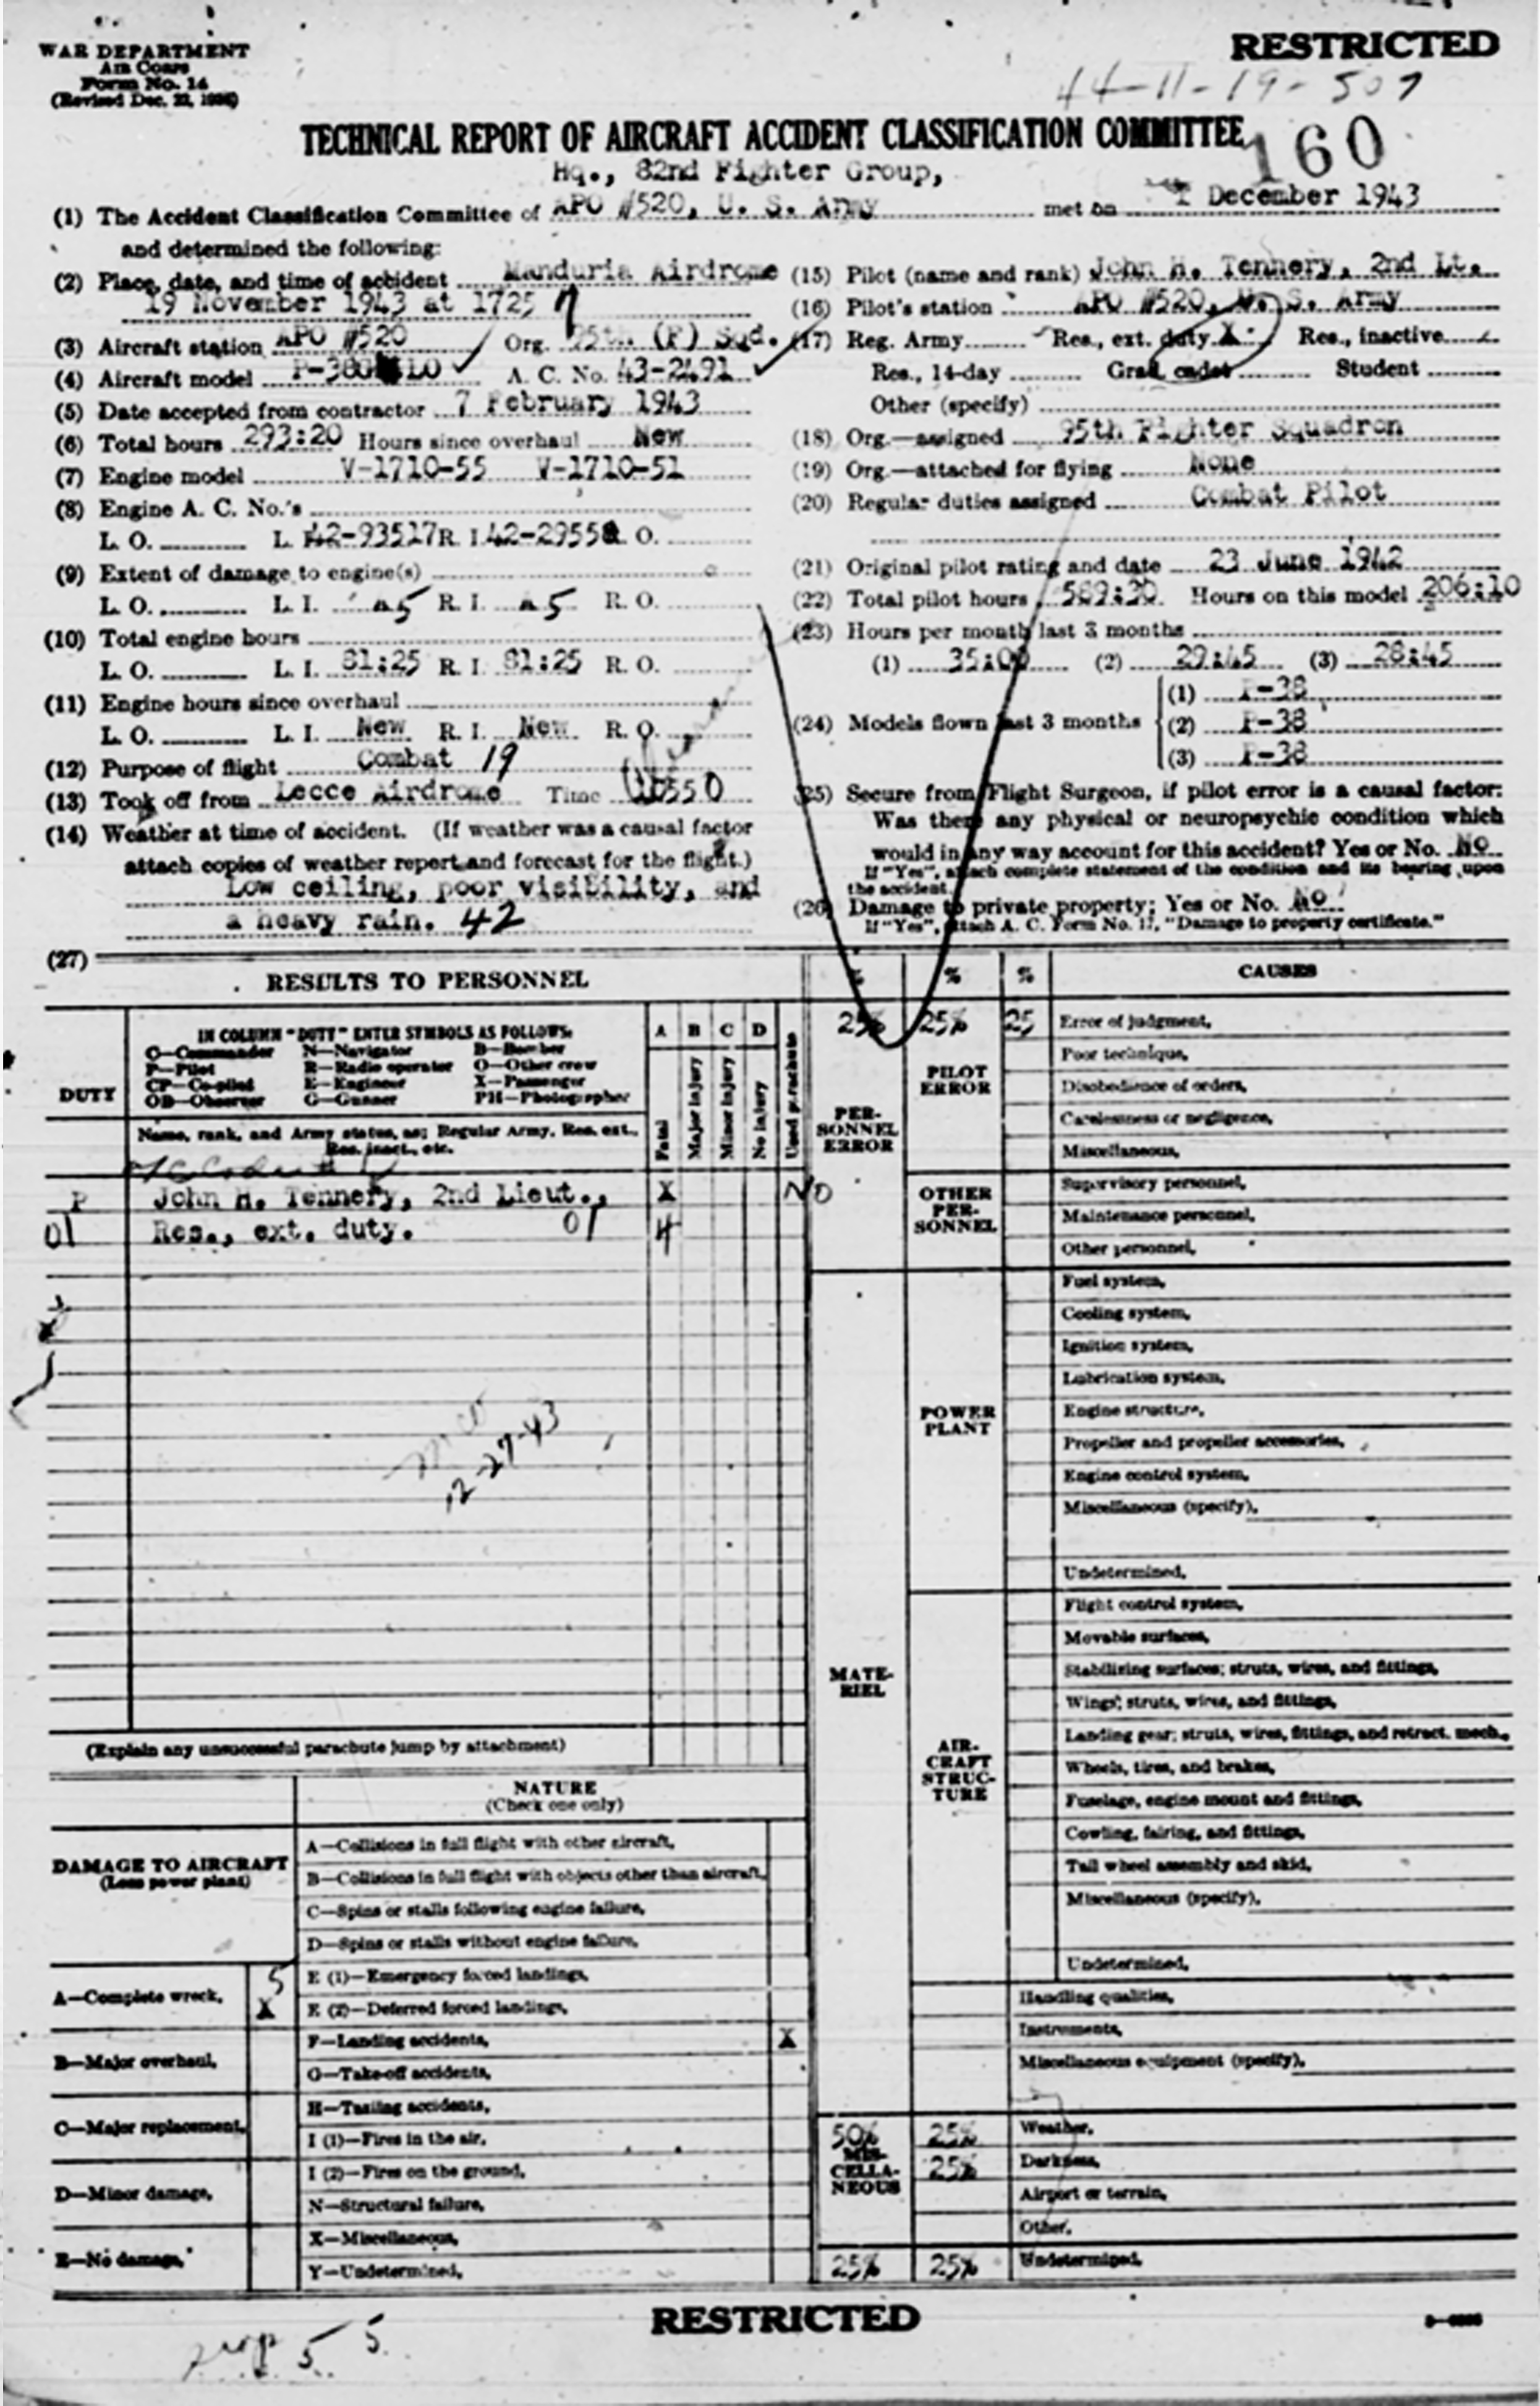 WAR DEPARTMENT
AIR CORPS
Form No. 14
RESTRICTED
44-11-19-507
TECHNICAL REPORT OF AIRCRAFT ACCIDENT CLASSIFICATION COMMITTEE
160
Hq., 82nd Fighter Group,
(1) The Accident Classification Committee of APO #520, U. S. Army met on December 1943
and determined the following:
(2) Place, date, and time of accident Manduria Airdrome
19 November 1943 at 1725
(3) Aircraft station APO #520 Org. 95th (F) Sqd.
(4) Aircraft model A. C. No. 43-2491
(5) Date accepted from contractor 7 February 1943
(6) Total hours 293:20 Hours since overhaul New
(7) Engine model V-1710-55 V-1710-51
(8) Engine A. C. No.'s
L. O. L. I. 42-93517 R. I. 42-2955 R. O.
(9) Extent of damage to engine(s)
L. O. L. I. A5 R. I. A5 R. O.
(10) Total engine hours
L. O. L. I. 81:25 R. I. 81:25 R. O.
(11) Engine hours since overhaul
L. O. L. I. New R. I. New R. O.
(12) Purpose of flight Combat 19
(13) Took off from Lecce Airdrome Time
(14) Weather at time of accident. (If weather was a causal factor
attach copies of weather report and forecast for the flight.)
Low ceiling, poor visibility, and
a heavy rain. 42
(15) Pilot (name and rank) John H. Tennery, 2nd Lt.
(16) Pilot's station APO #520, U. S. Army
(17) Reg. Army Res., ext. duty X Res., inactive
Res., 14-day Grad. cadet Student
Other (specify)
(18) Org.—assigned 95th Fighter Squadron
(19) Org.—attached for flying None
(20) Regular duties assigned Combat Pilot
(21) Original pilot rating and date 23 June 1942
(22) Total pilot hours 589:30 Hours on this model 206:10
(23) Hours per month last 3 months
(1) 35:00 (2) 29:45 (3) 28:45
(24) Models flown last 3 months
(1) P-38
(2) P-38
(3) P-38
(25) Secure from Flight Surgeon, if pilot error is a causal factor:
Was there any physical or neuropsychic condition which
would in any way account for this accident? Yes or No. No
If "Yes", attach complete statement of the condition and its bearing upon
the accident.
(26) Damage to private property; Yes or No. No
If "Yes", attach A. C. Form No. 17, "Damage to property certificate."
(27)
RESULTS TO PERSONNEL
DUTY
IN COLUMN "DUTY" ENTER SYMBOLS AS FOLLOWS:
C—Commander N—Navigator B—Bomber
P—Pilot R—Radio operator O—Other crew
CP—Co-pilot E—Engineer X—Passenger
OB—Observer G—Gunner PH—Photographer
Name, rank, and Army status, as; Regular Army, Res. ext.,
Res. inact., etc.
A B C D
Fatal
Major injury
Minor injury
No injury
Used parachute
P John H. Tennery, 2nd Lieut., X NO
01 Res., ext. duty. 01 4
12-27-43
(Explain any unsuccessful parachute jump by attachment)
DAMAGE TO AIRCRAFT
(Less power plant)
A—Complete wreck, 5
X
B—Major overhaul,
C—Major replacement,
D—Minor damage,
E—No damage,
NATURE
(Check one only)
A—Collisions in full flight with other aircraft,
B—Collisions in full flight with objects other than aircraft,
C—Spins or stalls following engine failure,
D—Spins or stalls without engine failure,
E (1)—Emergency forced landings,
E (2)—Deferred forced landings,
F—Landing accidents, X
G—Take-off accidents,
H—Taxiing accidents,
I (1)—Fires in the air,
I (2)—Fires on the ground,
N—Structural failure,
X—Miscellaneous,
Y—Undetermined,
% % % CAUSES
25% 25% 25 Error of judgment,
PERSONNEL ERROR
PILOT ERROR
Poor technique,
Disobedience of orders,
Carelessness or negligence,
Miscellaneous,
OTHER PERSONNEL
Supervisory personnel,
Maintenance personnel,
Other personnel,
MATERIEL
POWER PLANT
Fuel system,
Cooling system,
Ignition system,
Lubrication system,
Engine structure,
Propeller and propeller accessories,
Engine control system,
Miscellaneous (specify),
Undetermined,
AIRCRAFT STRUCTURE
Flight control system,
Movable surfaces,
Stabilizing surfaces; struts, wires, and fittings,
Wings; struts, wires, and fittings,
Landing gear; struts, wires, fittings, and retract. mech.,
Wheels, tires, and brakes,
Fuselage, engine mount and fittings,
Cowling, fairing, and fittings,
Tail wheel assembly and skid,
Miscellaneous (specify),
Undetermined,
Handling qualities,
Instruments,
Miscellaneous equipment (specify),
MISCELLANEOUS
50% 25% Weather,
25% Darkness,
Airport or terrain,
Other,
25% 25% Undetermined,
RESTRICTED
prop 5 5